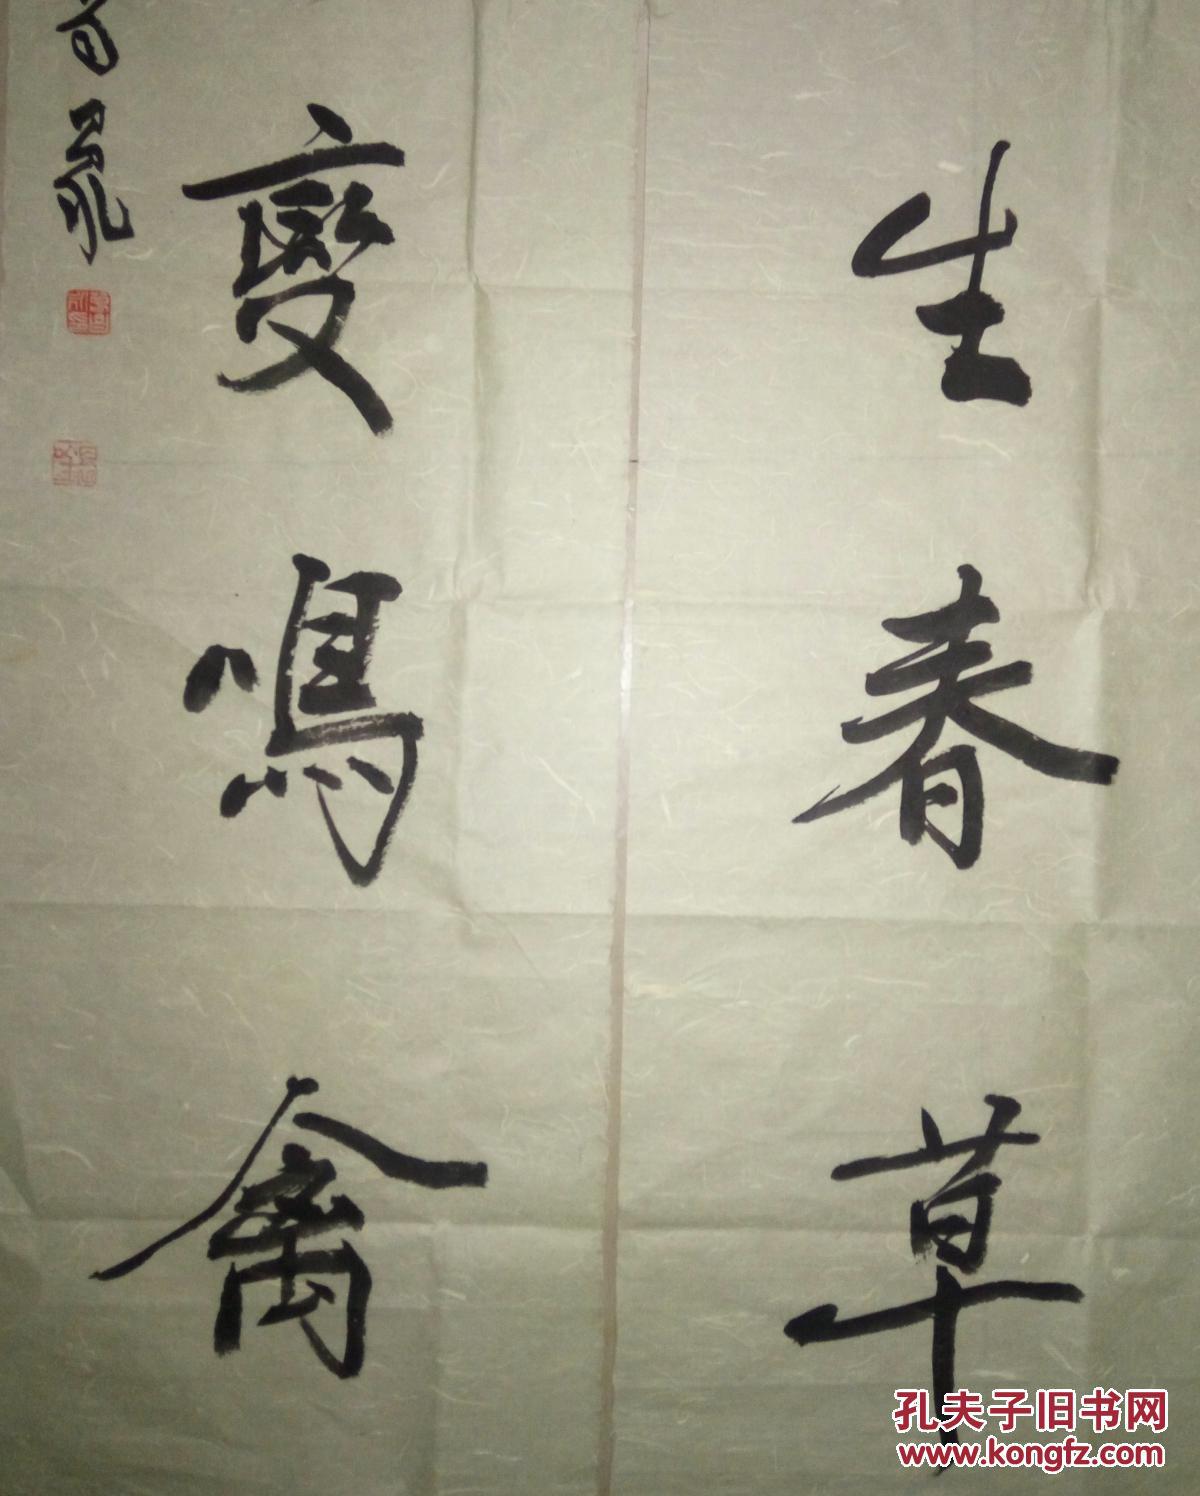 生春草
變鳴禽
孔夫子旧书网
www.kongfz.com